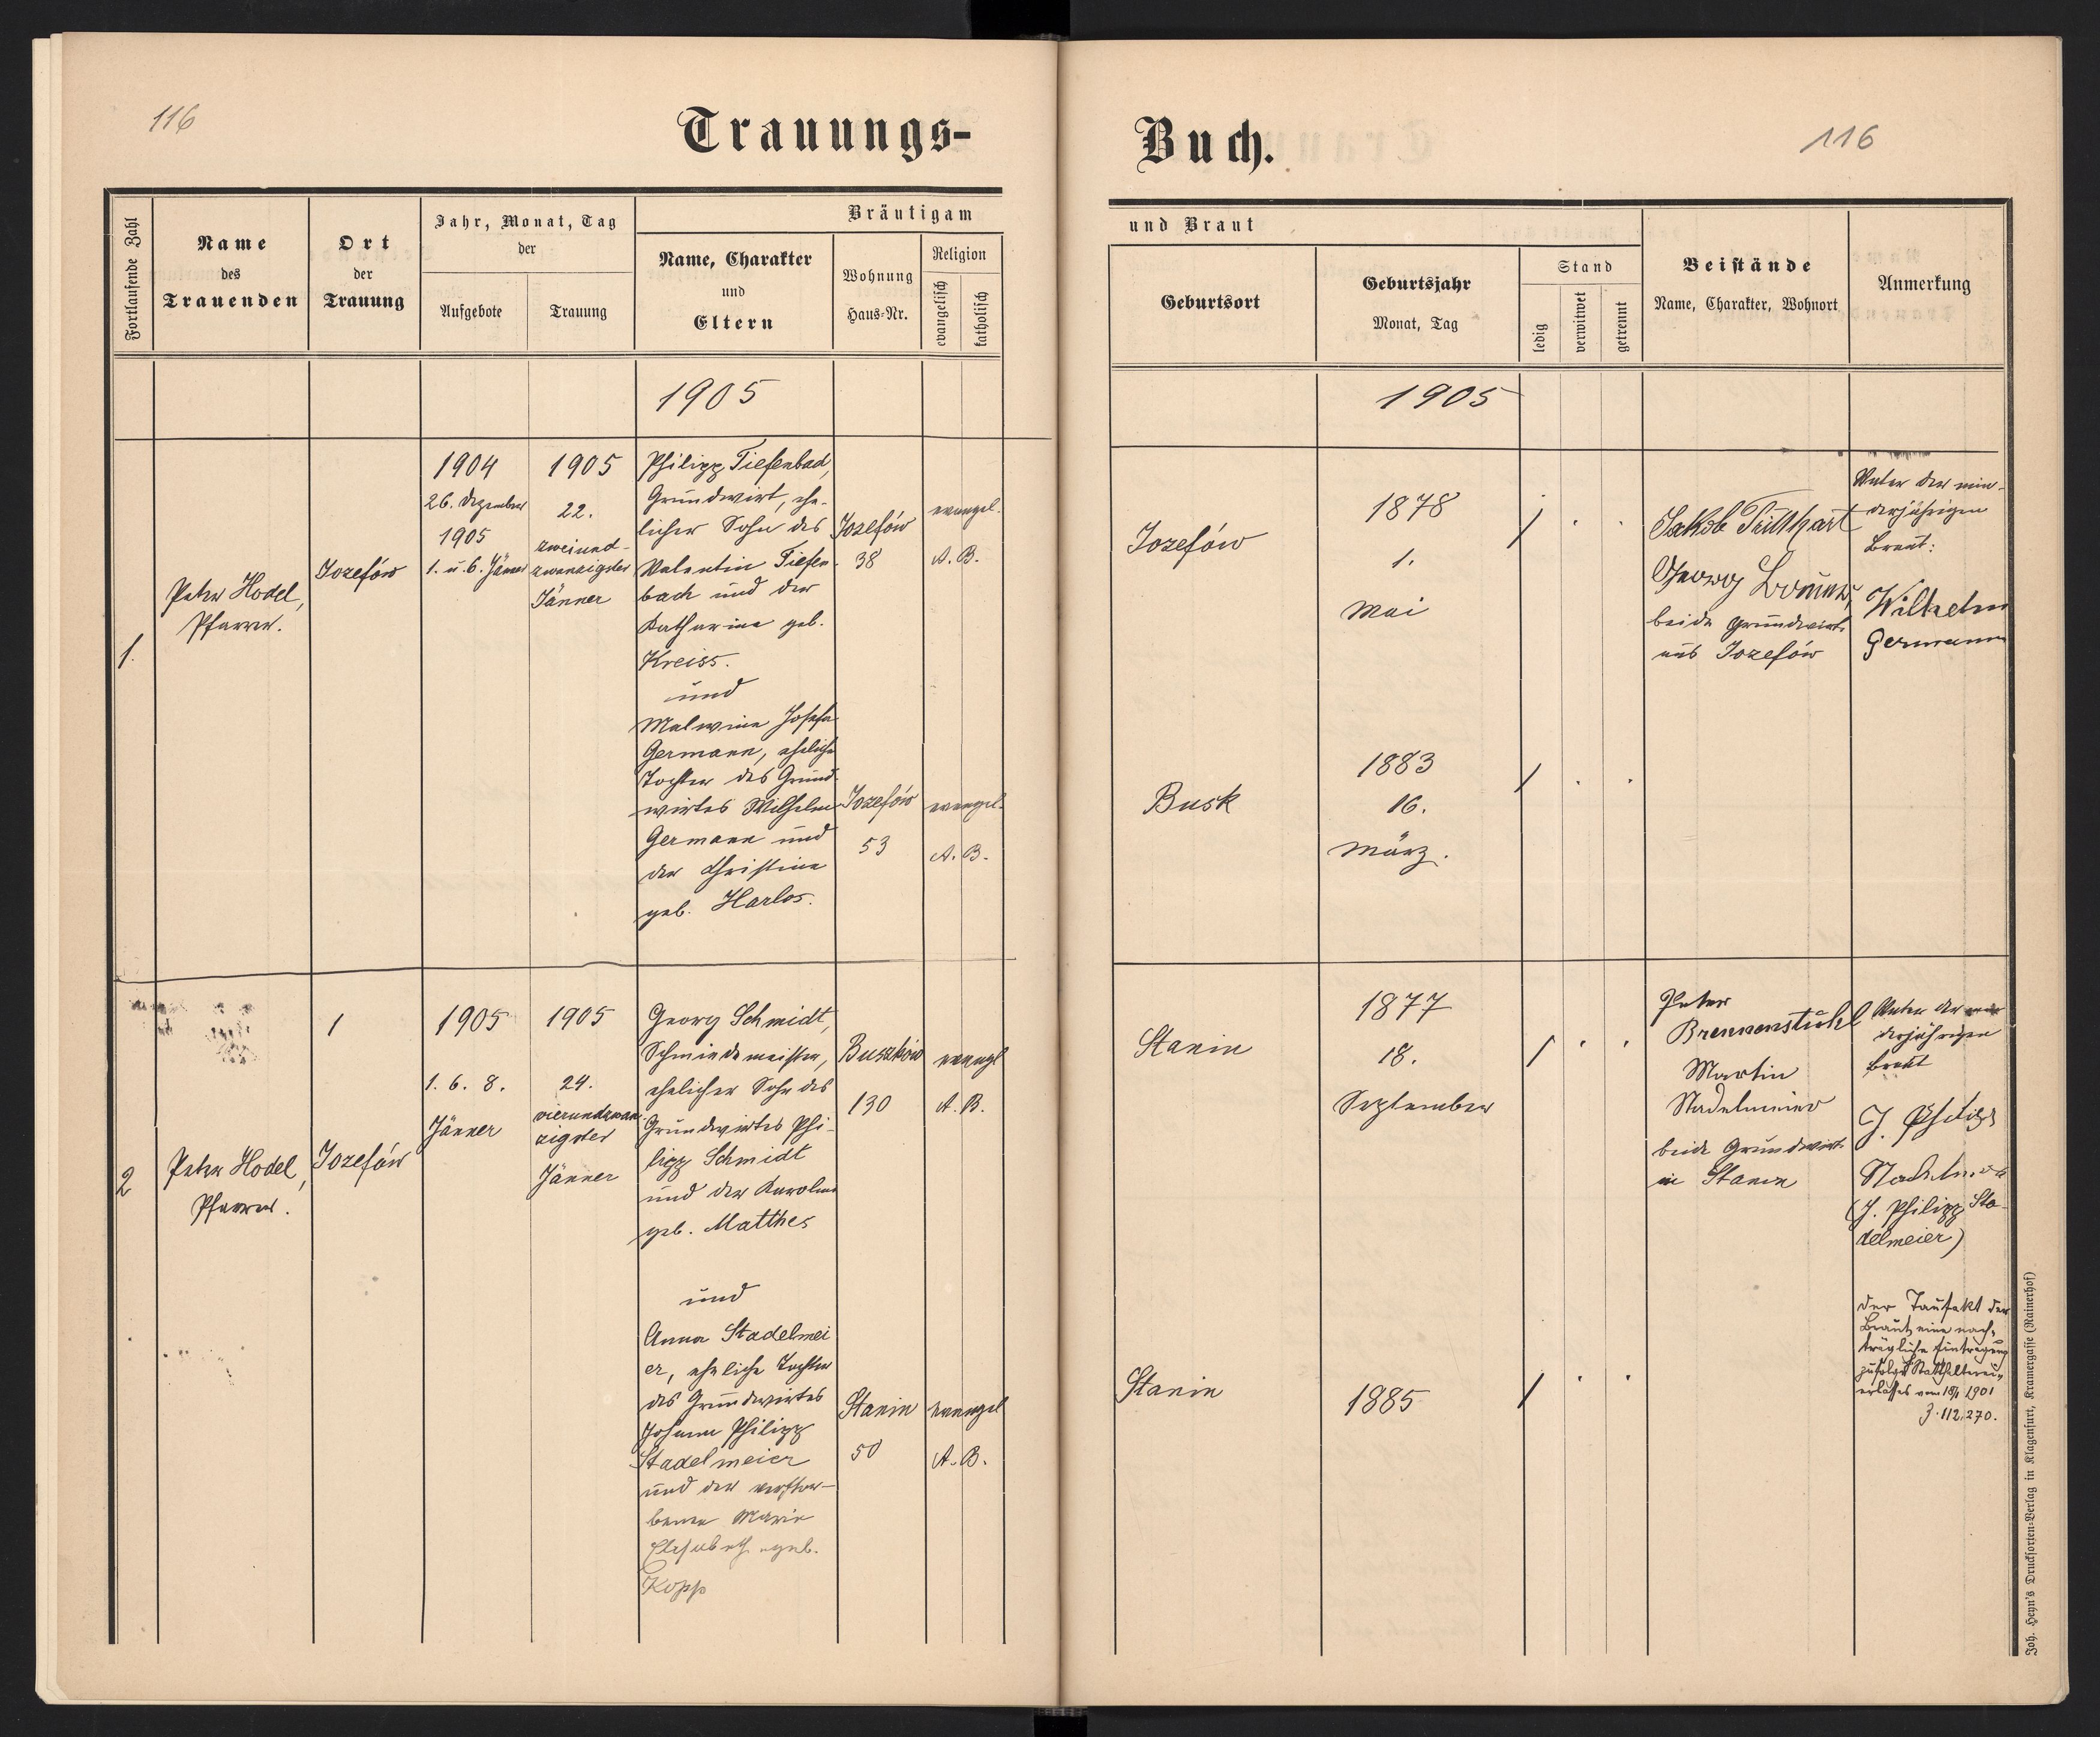 116
Trauungs-
Fortlaufende Zahl
Name
des
Trauenden
Ort
der
Trauung
Jahr, Monat, Tag
der
Aufgebote
Trauung
Bräutigam
Name, Charakter
und
Eltern
Wohnung
Haus-Nr.
Religion
evangelisch
katholisch
1905
1.
Peter Hodel,
Pfarrer.
Jozefów
1904
26. Dezember
1905
1. u. 6. Jänner
1905
22.
zweiund-
zwanzigster
Jänner
Philipp Tiefenbach,
Grundwirt, ehe-
licher Sohn des
Valentin Tiefen-
bach und der
Katharina geb.
Kreiss.
und
Malwine Josefa
Germann, eheliche
Tochter des Grund-
wirtes Wilhelm
Germann und
der Christine
geb. Harlos.
Jozefów
38
evangel.
A. B.
Jozefów
53
evangel.
A. B.
2
Peter Hodel,
Pfarrer.
1
Jozefów
1905
1. 6. 8.
Jänner
1905
24.
vierundzwan-
zigster
Jänner
Georg Schmidt,
Schmiedemeister,
ehelicher Sohn des
Grundwirtes Phi-
lipp Schmidt
und der Karoline
geb. Matthes
und
Anna Stadelmei
er, eheliche Tochter
des Grundwirtes
Johann Philipp
Stadelmeier
und der verstor-
benen Marie
Elisabeth geb.
Kopp
Buszków
130
evangl
A. B.
Stanin
50
evangel
A. B.
Buch.
116
und Braut
Geburtsort
Geburtsjahr
Monat, Tag
Stand
ledig
verwitwet
getrennt
Beistände
Name, Charakter, Wohnort
Anmerkung
1905
Jozefów
1878
1.
Mai
Jakob Trillhart
Georg
beide Grundwirte
aus Jozefów
Vater der min-
derjährigen
Braut:
Wilhelm
Germann
Busk
1883
16.
März.
Stanin
1877
18.
September
Peter
Brennenstuhl
Martin
Stadelmeier
beide Grundwirte
in Stanin
Vater der min
derjährigen
Braut
J. Philipp
Stadelmeier
(J. Philipp Sta-
delmeier)
Stanin
1885
der Taufakt der
Braut eine nach-
trägliche Eintragung
zufolge Statthalterei-
erlasses vom 18/1 1901
Z. 112,270.
Joh. Heyn's Drucksorten-Verlag in Klagenfurt, Kramergasse (Rainerhof)